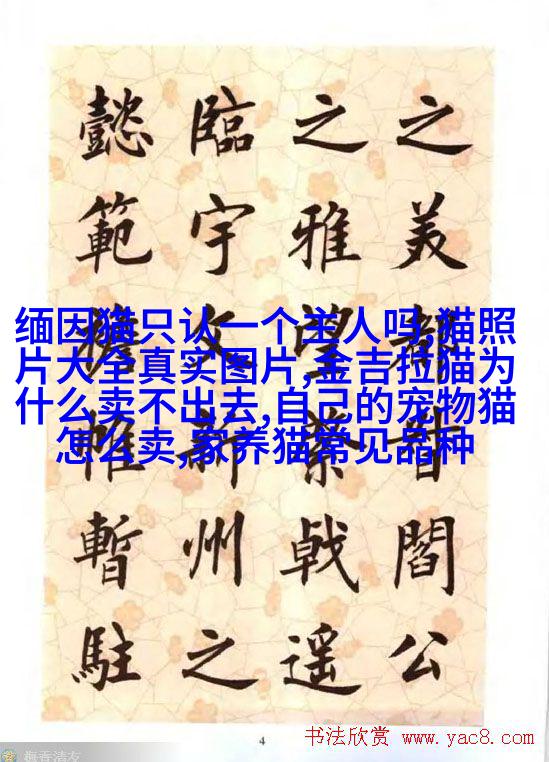 之美都督閻公
之雅望棨戟遥
臨宇文新州之
懿範帷暫駐
缅因猫只认一个主人吗,猫照
片大全真实图片,金吉拉猫为
什么卖不出去,自己的宠物猫
怎么卖,家养猫常见品种
4
书法欣赏 www.yac8.com
梅香清友